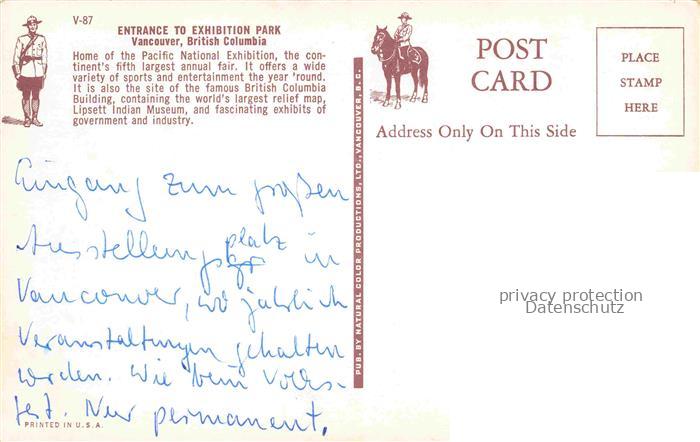 V-87
ENTRANCE TO EXHIBITION PARK
Vancouver, British Columbia
Home of the Pacific National Exhibition, the con-
tinent's fifth largest annual fair. It offers a wide
variety of sports and entertainment the year 'round.
It is also the site of the famous British Columbia
Building, containing the world's largest relief map,
Lipsett Indian Museum, and fascinating exhibits of
government and industry.
Eingang zum großen
Ausstellungsplatz in
Vancouver, wo jährlich
Veranstaltungen gehalten
werden. Wie beim Volks-
fest. Nur permanent.
PRINTED IN U.S.A.
PUB. BY NATURAL COLOR PRODUCTIONS, LTD., VANCOUVER, B.C.
POST
CARD
Address Only On This Side
PLACE
STAMP
HERE
privacy protection
Datenschutz